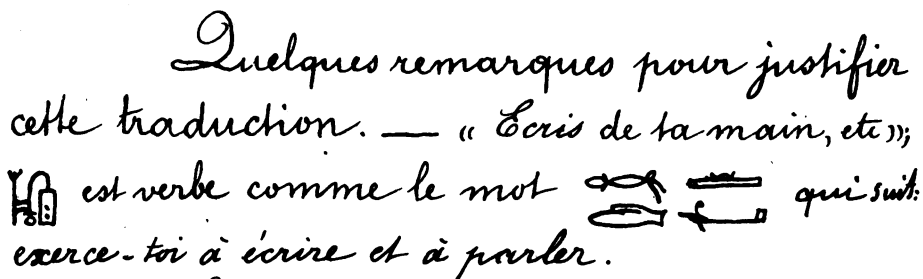 Quelques remarques pour justifier
cette traduction. — « Ecris de ta main, etc »;
est verbe comme le mot qui suit:
exerce-toi à écrire et à parler.